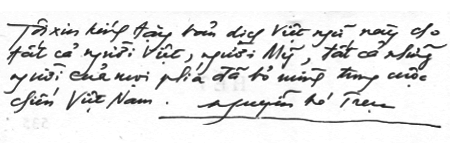 Tôi xin kính tặng bản dịch Việt ngữ này cho
tất cả người Việt, người Mỹ, tất cả những
người của mọi phía đã bỏ mình trong cuộc
chiến Việt Nam. Nguyễn Bá Trạc